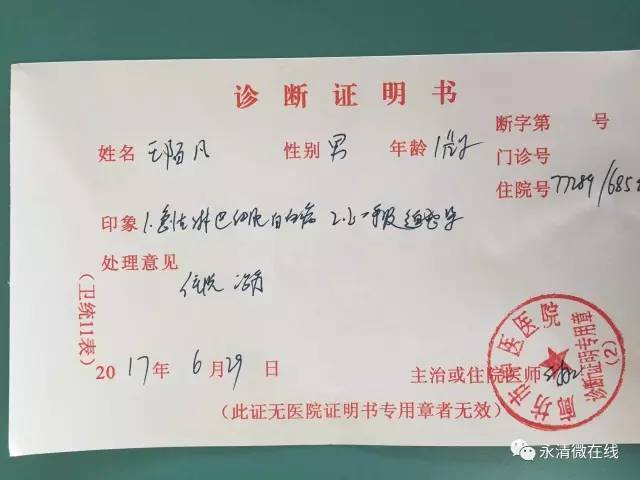 诊断证明书
断字第 号
姓名 王陌凡 性别 男 年龄 1岁
门诊号
住院号 77289/685
印象 1.急性淋巴细胞白血病 2.上呼吸道感染
处理意见
住院 治疗
(卫统11表)
2017年 6月29日
主治或住院医师
(此证无医院证明书专用章者无效)
廊坊市中医医院
诊断证明专用章
(2)
永清微在线